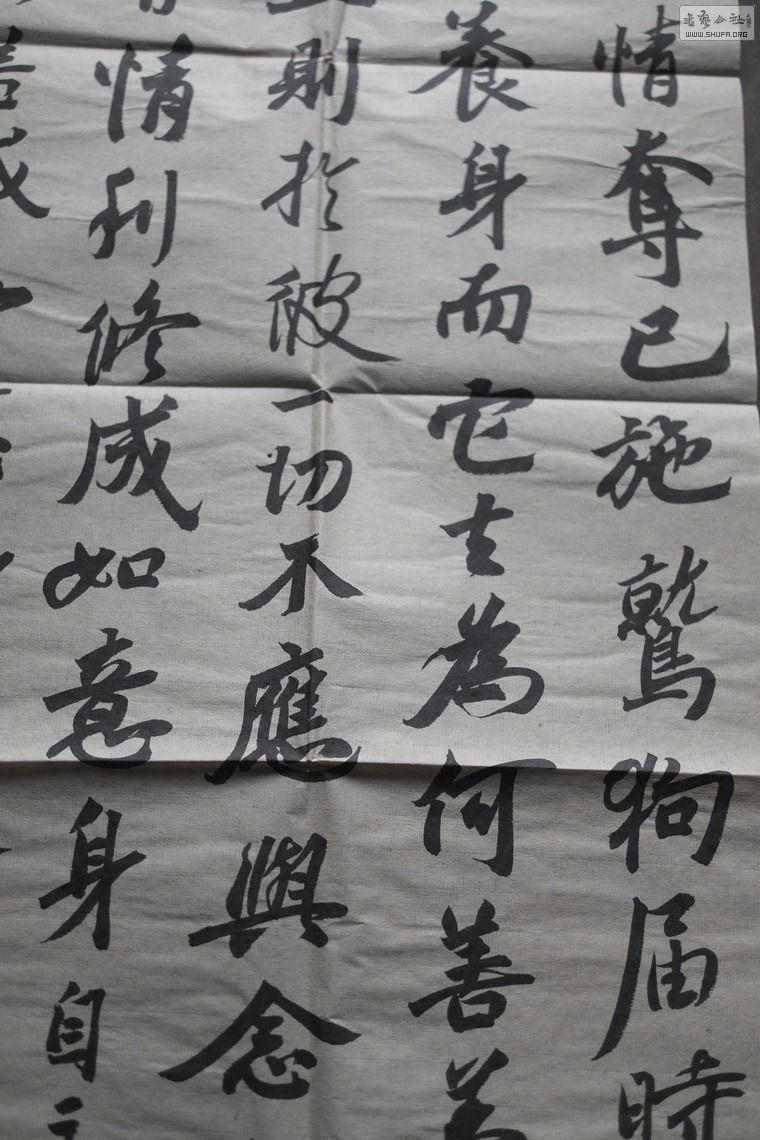 情奪已施鷲狗届時
養身而它士為何善
則於彼一切不應與念
情利修成如意身自
善成
書藝公社
WWW.SHUFA.ORG